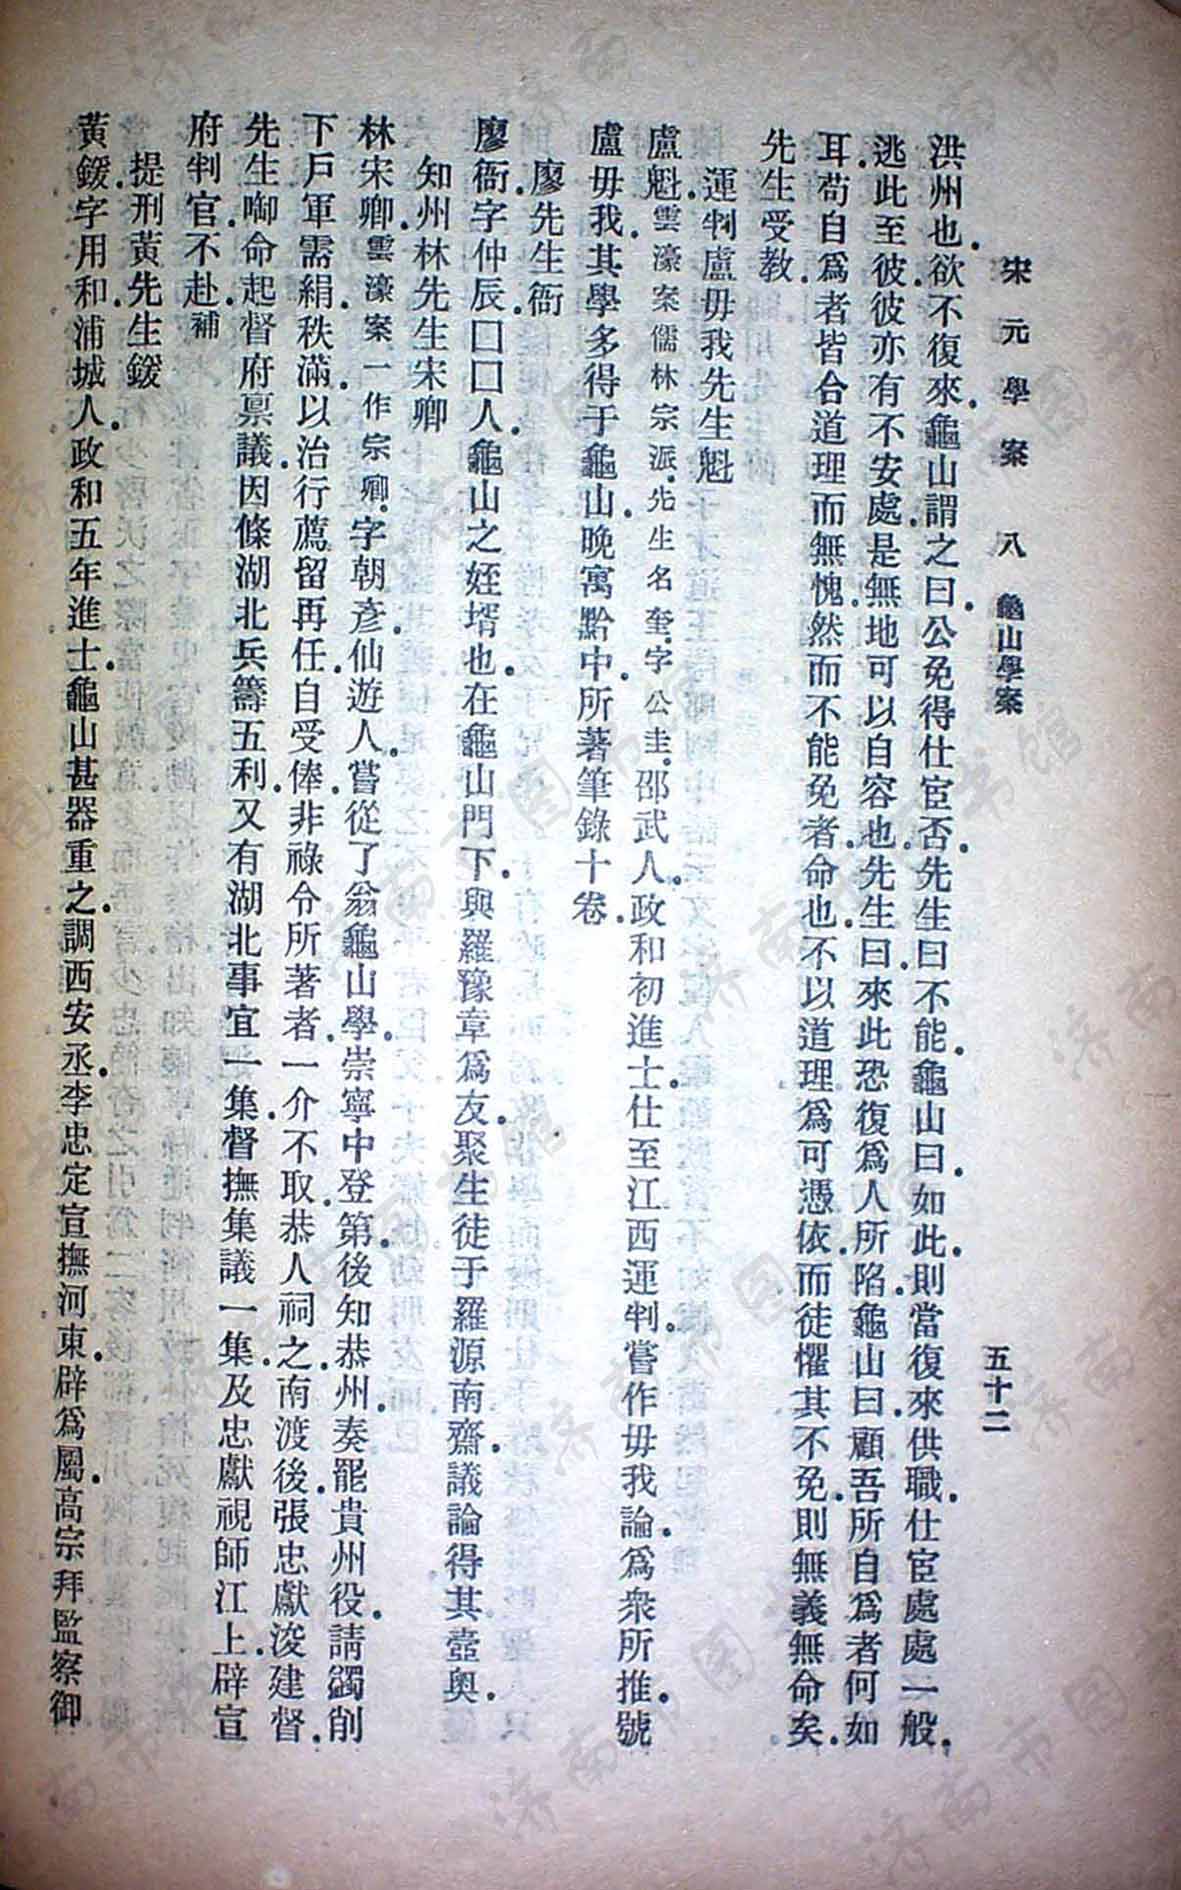 宋元學案 八 龜山學案 五十二
洪州也.欲不復來.龜山謂之曰.公免得仕宦否.先生曰.不能.龜山曰.如此.則當復來供職.仕宦處處一般.
逃此至彼.彼亦有不安處.是無地可以自容也.先生曰.來此恐復爲人所陷.龜山曰.顧吾所自爲者何如
耳.苟自爲者皆合道理而無愧.然而不能免者.命也.不以道理爲可憑依.而徒懼其不免.則無義無命矣.
先生受教.
運判盧毋我先生魁
盧魁.雲濠案儒林宗派.先生名奎.字公圭.邵武人.政和初進士.仕至江西運判.嘗作毋我論.爲衆所推.號
盧毋我.其學多得于龜山.晚寓黔中.所著筆錄十卷.
廖先生衙
廖衙.字仲辰.囗囗人.龜山之姪壻也.在龜山門下.與羅豫章爲友.聚生徒于羅源南齋.議論得其壺奥.
知州林先生宋卿
林宋卿.雲濠案一作宗卿.字朝彥.仙遊人.嘗從了翁龜山學.崇寧中登第.後知恭州.奏罷貴州役.請蠲削
下戶軍需絹.秩滿.以治行薦留再任.自受俸.非祿令所著者一介不取.恭人祠之.南渡後.張忠獻浚建督.
先生啣命起督府稟議.因條湖北兵籌五利.又有湖北事宜一集.督撫集議一集.及忠獻視師江上.辟宣
府判官.不赴.補
提刑黃先生鍰
黃鍰.字用和.浦城人.政和五年進士.龜山甚器重之.調西安丞.李忠定宣撫河東.辟爲屬.高宗拜監察御